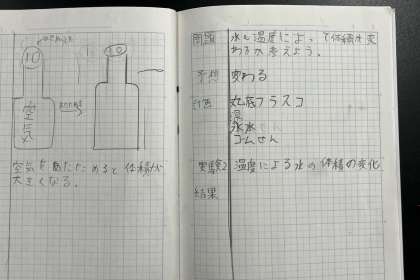 空気
空気をあたためると体積が
大きくなる。
問題 水も温度によって体積が変
わるか考えよう。
予想 変わる
計画 丸底フラスコ
湯
氷水
ゴムせん
実験2 温度による水の体積の変化
結果